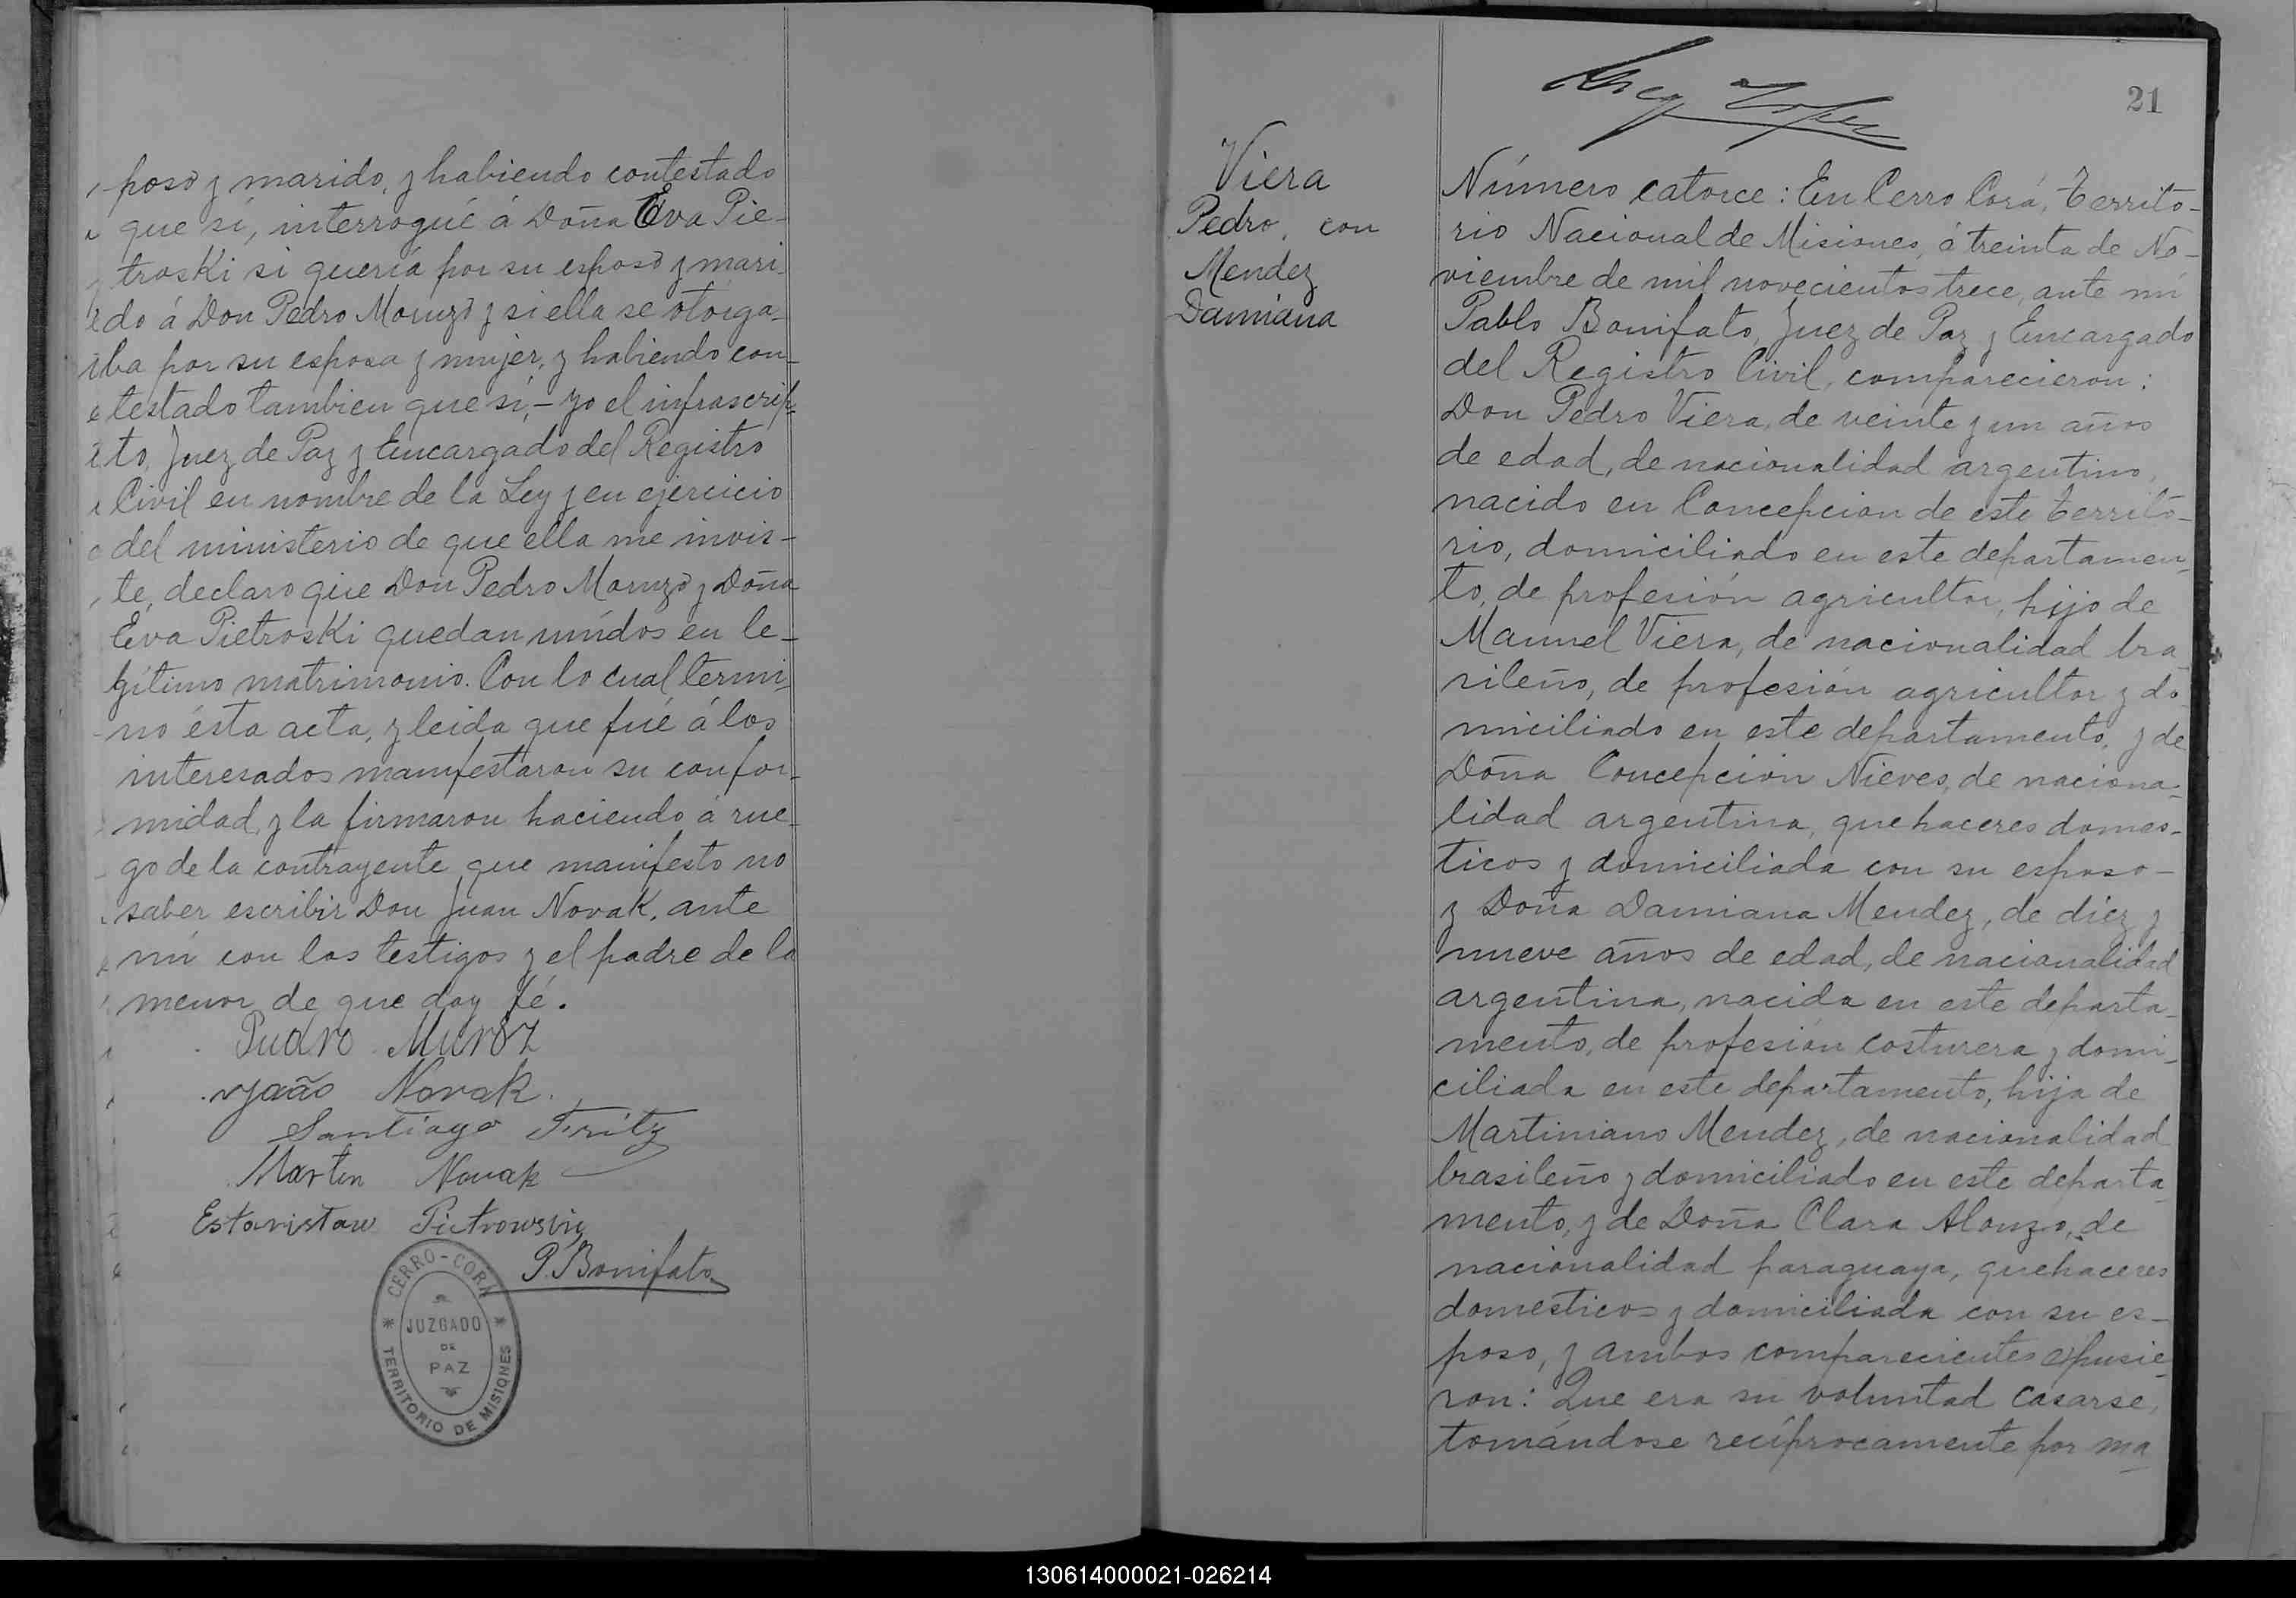 poso y marido, y habiendo contestado
que sí, interrogué á Doña Eva Pie-
troski si quería por su esposo y mari-
do á Don Pedro Moruzo y si ella se otorga-
ba por su esposa y mujer, y habiendo con-
testado tambien que sí, – yo el infrascrip-
to, Juez de Paz y Encargado del Registro
Civil en nombre de la Ley y en ejercicio
del ministerio de que ella me invis-
te, declaro que Don Pedro Moruzo y Doña
Eva Pietroski quedan unidos en le-
gítimo matrimonio. Con lo cual termi-
nó ésta acta, y leida que fué á los
interesados manifestaron su confor-
midad, y la firmaron haciendo á rue-
go de la contrayente que manifesto no
saber escribir Don Juan Novak, ante
mí con los testigos y el padre de la
menor de que doy fé.
Juão Novak.
Santiago Fritz
Martin Novak
Pietrowski
P. Bonifato
CERRO-CORÁ
JUZGADO
DE
PAZ
TERRITORIO DE MISIONES
21
Viera
Pedro, con
Mendez
Damiana
Número catorce: En Cerro Corá, Territo-
rio Nacional de Misiones, á treinta de No-
viembre de mil novecientos trece, ante mí
Pablo Bonifato, Juez de Paz y Encargado
del Registro Civil, comparecieron:
Don Pedro Viera, de veinte y un años
de edad, de nacionalidad argentino,
nacido en Concepcion de este Territo-
rio, domiciliado en este departamen-
to, de profesión agricultor, hijo de
Manuel Viera, de nacionalidad bra-
sileño, de profesión agricultor y do-
miciliado en este departamento, y de
Doña Concepción Nieves, de naciona-
lidad argentina, quehaceres domes-
ticos y domiciliada con su esposo-
y Doña Damiana Mendez, de diez y
nueve años de edad, de nacionalidad
argentina, nacida en este departa-
mento, de profesión costurera y domi-
ciliada en este departamento, hija de
Martiniano Mendez, de nacionalidad
brasileño y domiciliado en este departa-
mento, y de Doña Clara Alonzo, de
nacionalidad paraguaya, quehaceres
domesticos y domiciliada con su es-
poso, y ambos comparecientes expusie-
ron: Que era su voluntad casarse,
tomándose recíprocamente por ma-
130614000021-026214